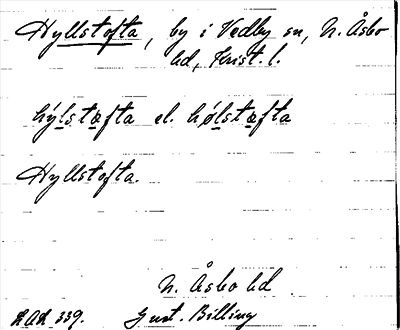 Hyllstofta, by i Vedby sn, N. Åsbo
hd, Krist. l.
hýlstæfta el. hǿlstæfta
Hyllstofta.
N. Åsbo hd
339. Gust. Billing